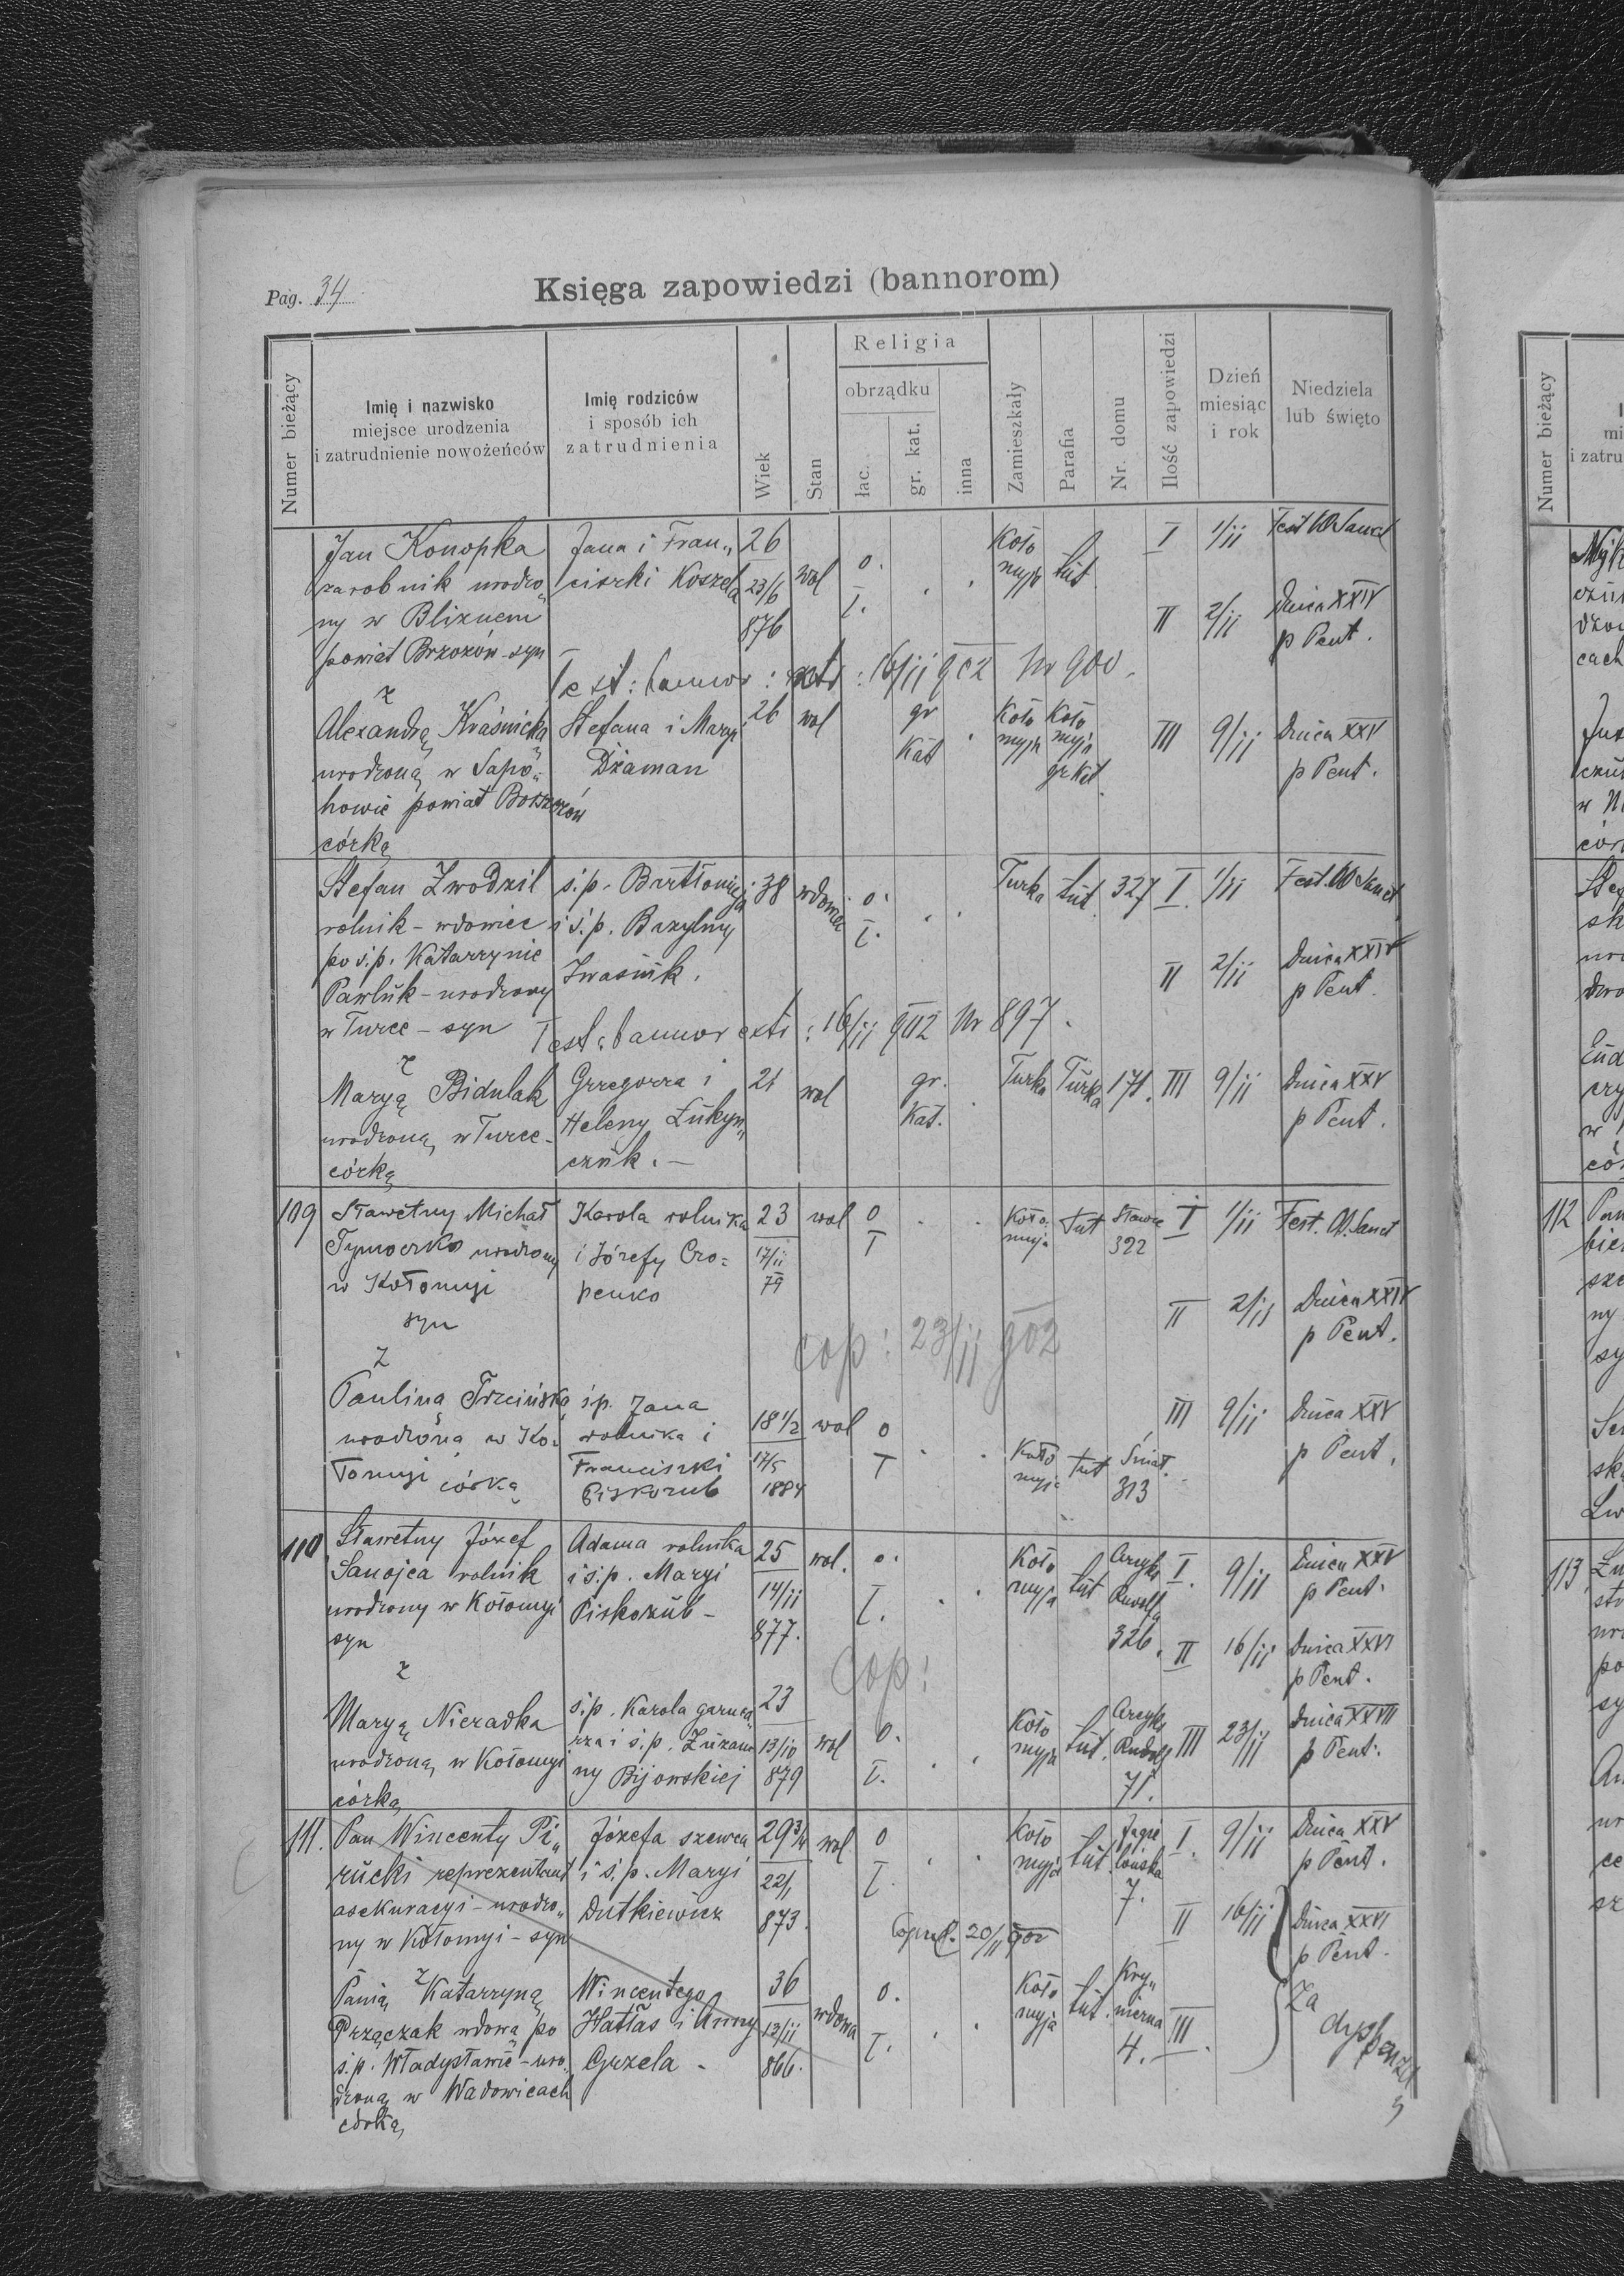 Pag. 34
Księga zapowiedzi (bannorom)
Numer bieżący
Imię i nazwisko
miejsce urodzenia
i zatrudnienie nowożeńców
Imię rodziców
i sposób ich
zatrudnienia
Wiek
Stan
Religia
obrządku
łac.
gr. kat.
inna
Zamieszkały
Parafia
Nr. domu
Ilość zapowiedzi
Dzień
miesiąc
i rok
Niedziela
lub święto
Jan Konopka
zarobnik urodzo„
ny w Bliznem
powiat Brzozów syn
z
Jana i Fran„
ciszki Koszela
26
23/6
876
wol
o.
ł.
Koło
myja
tut
I 1/11 Fest OO Sanct
II 2/11 Dnica XXIV
p Pent.
Test: bannor: extr: 16/11 902 Nr 900.
Alexandrą Kraśnicką
urodzoną w Sapo„
howie powiat Borszczów
córką
Stefana i Maryi
Dżaman
26
wol
gr
Kat
Koło
myja
Koło
myja
gr Kat.
III 9/11 Dnica XXV
p Pent.
Stefan Zwodzil
rolnik - wdowiec
po ś.p. Katarzynie
Pawluk - urodzony
w Turce - syn
z
ś.p. Bartłomieja
i ś.p. Bazyliny
Iwasiuk.
38
wdowiec
o.
ł.
Turka tut 327 I. 1/11 Fest. OO Sanct
II 2/11 Dnica XXIV
p Pent.
Test: bannor extr: 16/11 902 Nr 897.
Maryą Bidulak
urodzoną w Turce -
córką
Grzegorza i
Heleny Łukyn„
czuk. -
21
wol
gr.
Kat.
Turka Turka 171. III 9/11 Dnica XXV
p Pent.
109
Sławetny Michał
Tymoczko urodzony
w Kołomyi
syn
z
Karola rolnika
i Józefy Cro=
penko
23
17/11
79
wol
o
ł
Koło
myja
tut
Stawce
322
I 1/11 Fest. OO. Sanct
II 2/11 Dnica XXIV
p Pent.
cop: 23/11 902
Pauliną Trzcińską
urodzona w Ko=
łomyi córką
ś.p. Jana
rolnika i
Franciszki
Piskozub
18 1/2
17/5
1884
wol
o
ł
Koło
myja
tut
Śniat.
313
III 9/11 Dnica XXV
p Pent.
110
Sławetny Józef
Sanojca rolnik
urodzony w Kołomyi
syn
z
Adama rolnika
i ś.p. Maryi
Piskozub -
25
14/11
877.
wol.
o.
ł.
Koło
myja
tut
Arcyks
Rudolfa
326.
I. 9/11 Dnica XXV
p Pent.
II 16/11 Dnica XXVI
p Pent.
cop:
Maryą Nieradka
urodzoną w Kołomyi
córką
ś.p. Karola garnca„
rza i ś.p. Zuzan
ny Bijowskiej
23
13/10
879
wol
o.
ł.
Koło
myja
tut.
Arcyks
Rudolf
71.
III 23/11 Dnica XXVII
p Pent.
111.
Pan Wincenty Pi„
rucki reprezentant
asekuracyi - urodzo„
ny w Kołomyi - syn
z
Józefa szewca
i ś.p. Maryi
Dutkiewicz
29 3/4
22/1
873.
wol
o
ł.
Koło
myja
tut.
Jagie
lońska
7.
I. 9/11 Dnica XXV
p Pent.
II 16/11 Dnica XXVI
p Pent.
20/11 902
Panią Katarzyną
Przączak wdową po
ś.p. Władysławie - uro„
dzoną w Wadowicach
córką
Wincentego
Hatłas i Anny
Grzela -
36
13/11
866.
wdowa
o.
ł.
Koło
myja
tut.
Kry„
niczna
4.
III.
Za
dyspenzą